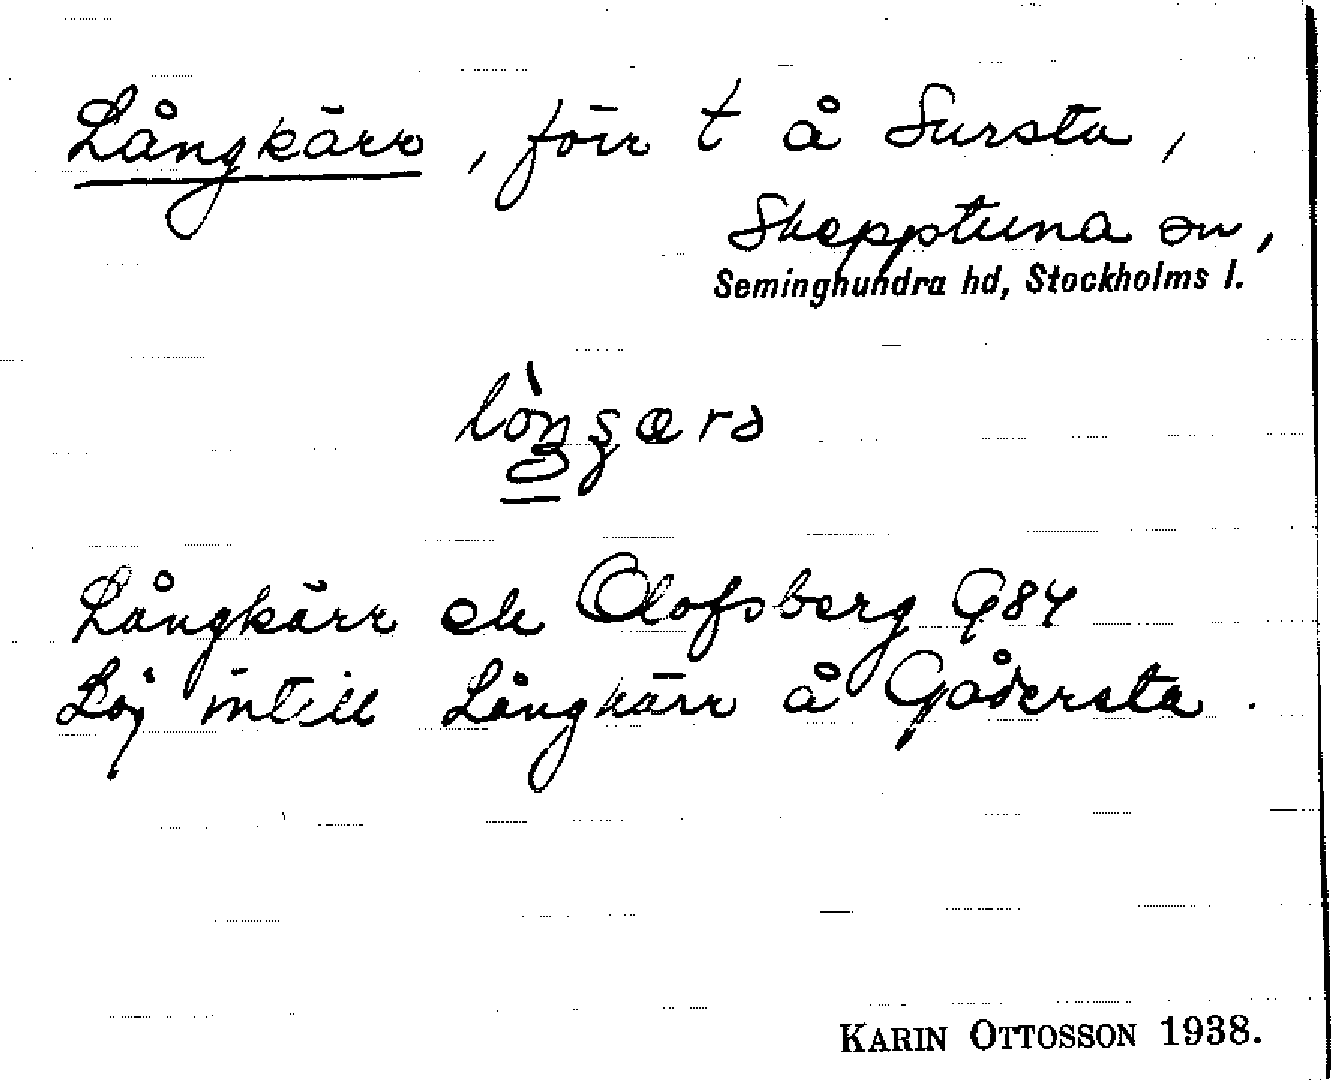 Långkärr, förr t å Sursta,
Skepptuna sn,
Seminghundra hd, Stockholms l.
Långkärr el Olofsberg G84
Låg intill Långkärr å Gådersta.
KARIN OTTOSSON 1938.